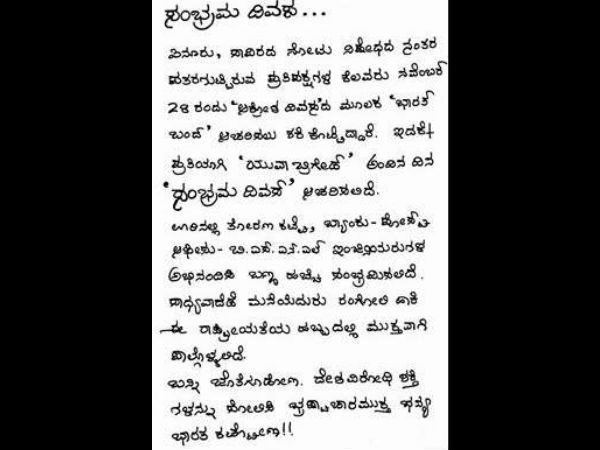 ಸಂಭ್ರಮ ದಿವಸ...
ಐನೂರು, ಸಾವಿರದ ನೋಟು ನಿಷೇಧದ ನಂತರ
ಪತರಗುಟ್ಟಿರುವ ಪ್ರತಿಪಕ್ಷಗಳ ಕೆಲವರು ನವೆಂಬರ್
28 ರಂದು 'ಆಕ್ರೋಶ ದಿವಸ'ದ ಮೂಲಕ 'ಭಾರತ್
ಬಂದ್' ಆಚರಿಸಲು ಕರೆ ಕೊಟ್ಟಿದ್ದಾರೆ. ಇದಕ್ಕೆ
ಪ್ರತಿಯಾಗಿ 'ಯುವಾ ಬ್ರಿಗೇಡ್' ಅಂದಿನ ದಿನ
'ಸಂಭ್ರಮ ದಿವಸ' ಆಚರಿಸಲಿದೆ.
ಊರಿನಲ್ಲಿ ತೋರಣ ಕಟ್ಟಿ, ಬ್ಯಾಂಕು - ಪೋಸ್ಟ್
ಆಫೀಸು - ಬಿ.ಎಸ್.ಎನ್.ಎಲ್ ಇಂಜಿನಿಯರುಗಳ
ಅಭಿನಂದಿಸಿ ಬಣ್ಣ ಹಚ್ಚಿ ಸಂಭ್ರಮಿಸಲಿದೆ.
ಸಾಧ್ಯವಾದರೆ ಮನೆಯೆದುರು ರಂಗೋಲಿ ಹಾಕಿ
ಈ ರಾಷ್ಟ್ರೀಯತೆಯ ಹಬ್ಬದಲ್ಲಿ ಮುಕ್ತವಾಗಿ
ಪಾಲ್ಗೊಳ್ಳಲಿದೆ.
ಬನ್ನಿ ಜೊತೆಗೂಡೋಣ. ದೇಶವಿರೋಧಿ ಶಕ್ತಿ
ಗಳನ್ನು ಸೋಲಿಸಿ ಭ್ರಷ್ಟಾಚಾರಮುಕ್ತ ಭವ್ಯ
ಭಾರತ ಕಟ್ಟೋಣ!!